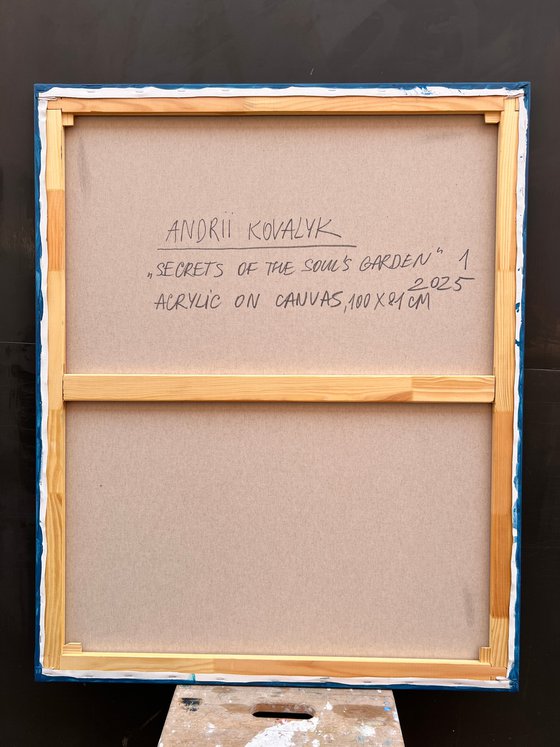 ANDRII KOVALYK
„SECRETS OF THE SOUL'S GARDEN" 1
2025
ACRYLIC ON CANVAS, 100 X 81 CM